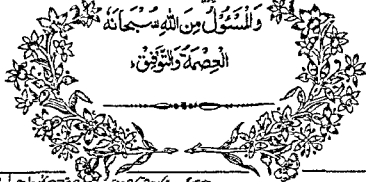 وَالْمَسْئُولُ مِنَ اللّٰهِ سُبْحَانَهُ
الْعِصْمَةُ وَالتَّوْفِيْقُ